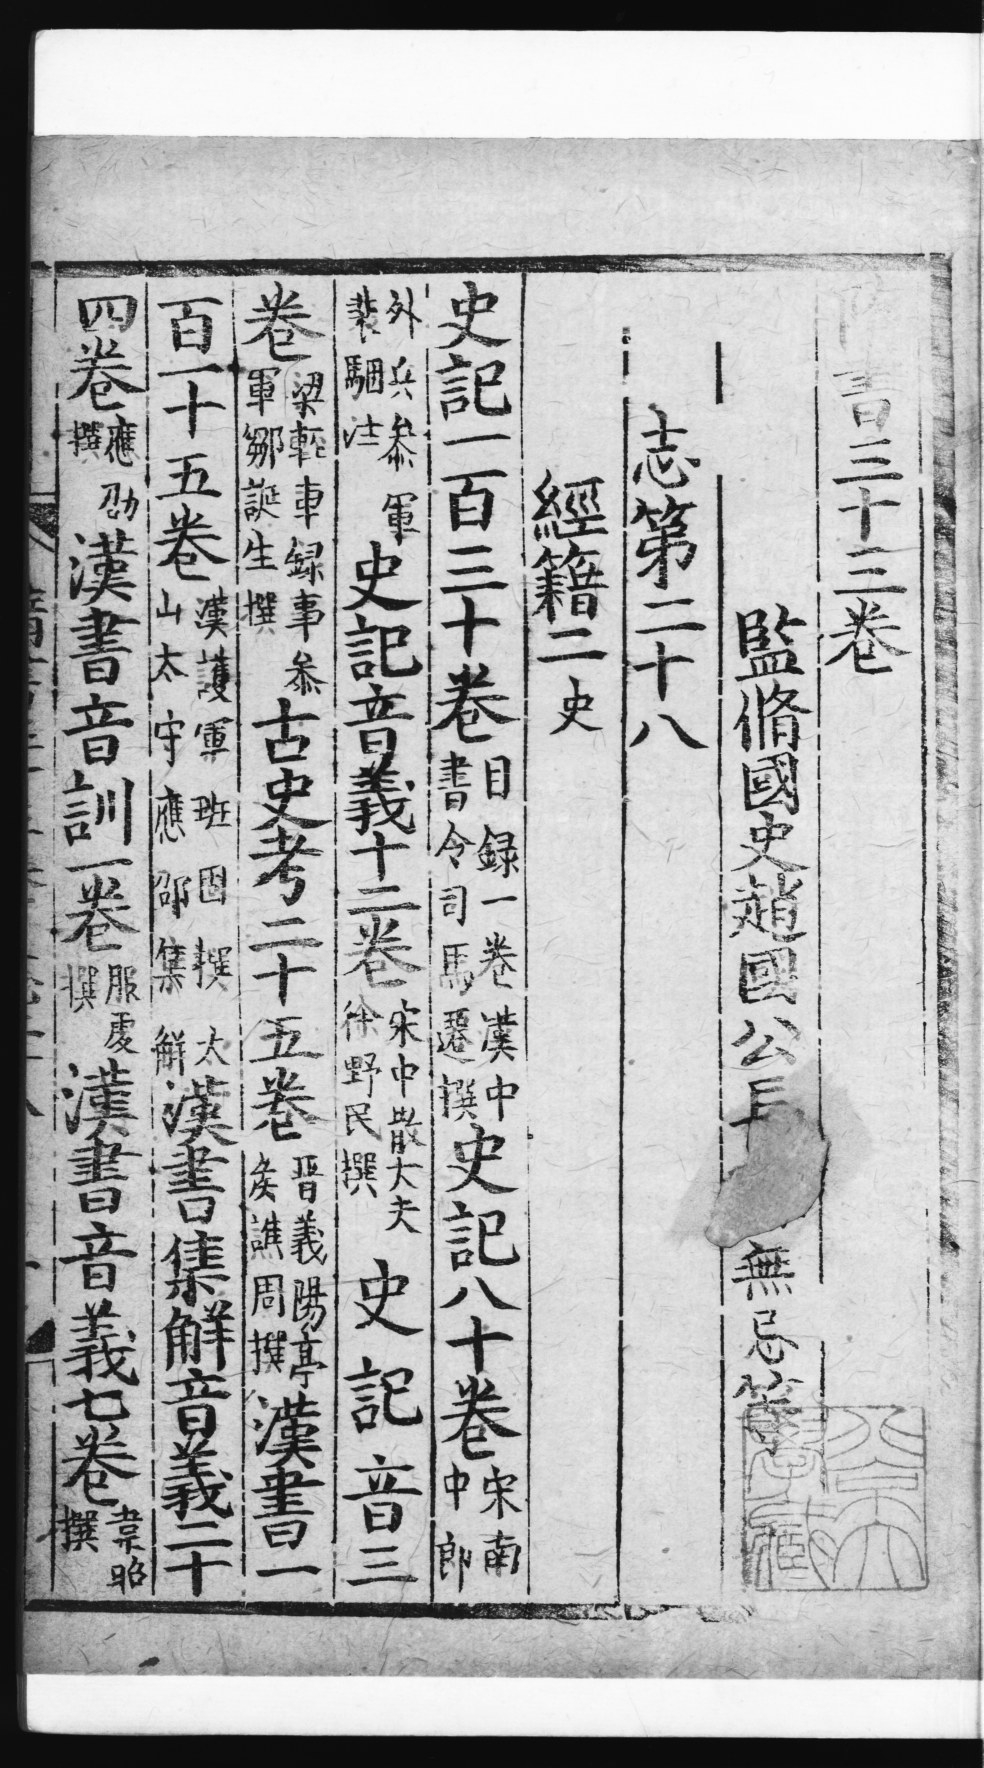 書三十三卷
監脩國史趙國公長 無忌等
志第二十八
經籍二 史
史記一百三十卷 目録一卷漢中書令司馬遷撰 史記八十卷 宋南中郎
外兵叅軍裴駰注 史記音義十二卷 宋中散大夫徐野民撰 史記音三
卷 梁輕車録事叅軍鄒誕生撰 古史考二十五卷 晉義陽亭侯譙周撰 漢書一
百一十五卷 漢護軍班固撰太山太守應邵集解 漢書集解音義二十
四卷 應劭撰 漢書音訓一卷 服虔撰 漢書音義七卷 韋昭撰